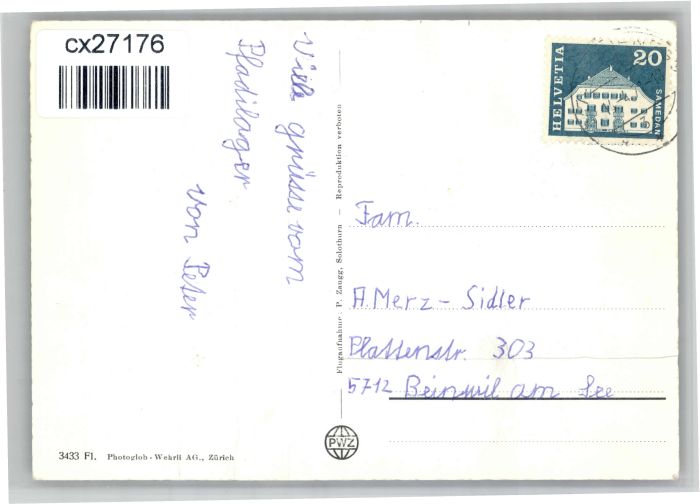 cx27176
Viele grüsse vom
Pfadilager
von Peter
HELVETIA
20
SAMEDAN
Flugaufnahme: P. Zaugg, Solothurn – Reproduktion verboten
Fam.
A. Merz - Sidler
Plattenstr. 303
5712 Beinwil am See
PWZ
3433 Fl. Photoglob - Wehrli AG., Zürich